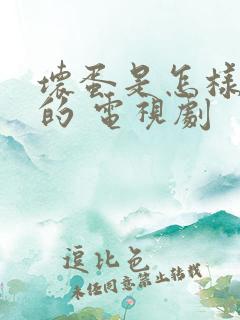 壞蛋是怎樣
的 電視劇
逗比色
未经同意禁止转载